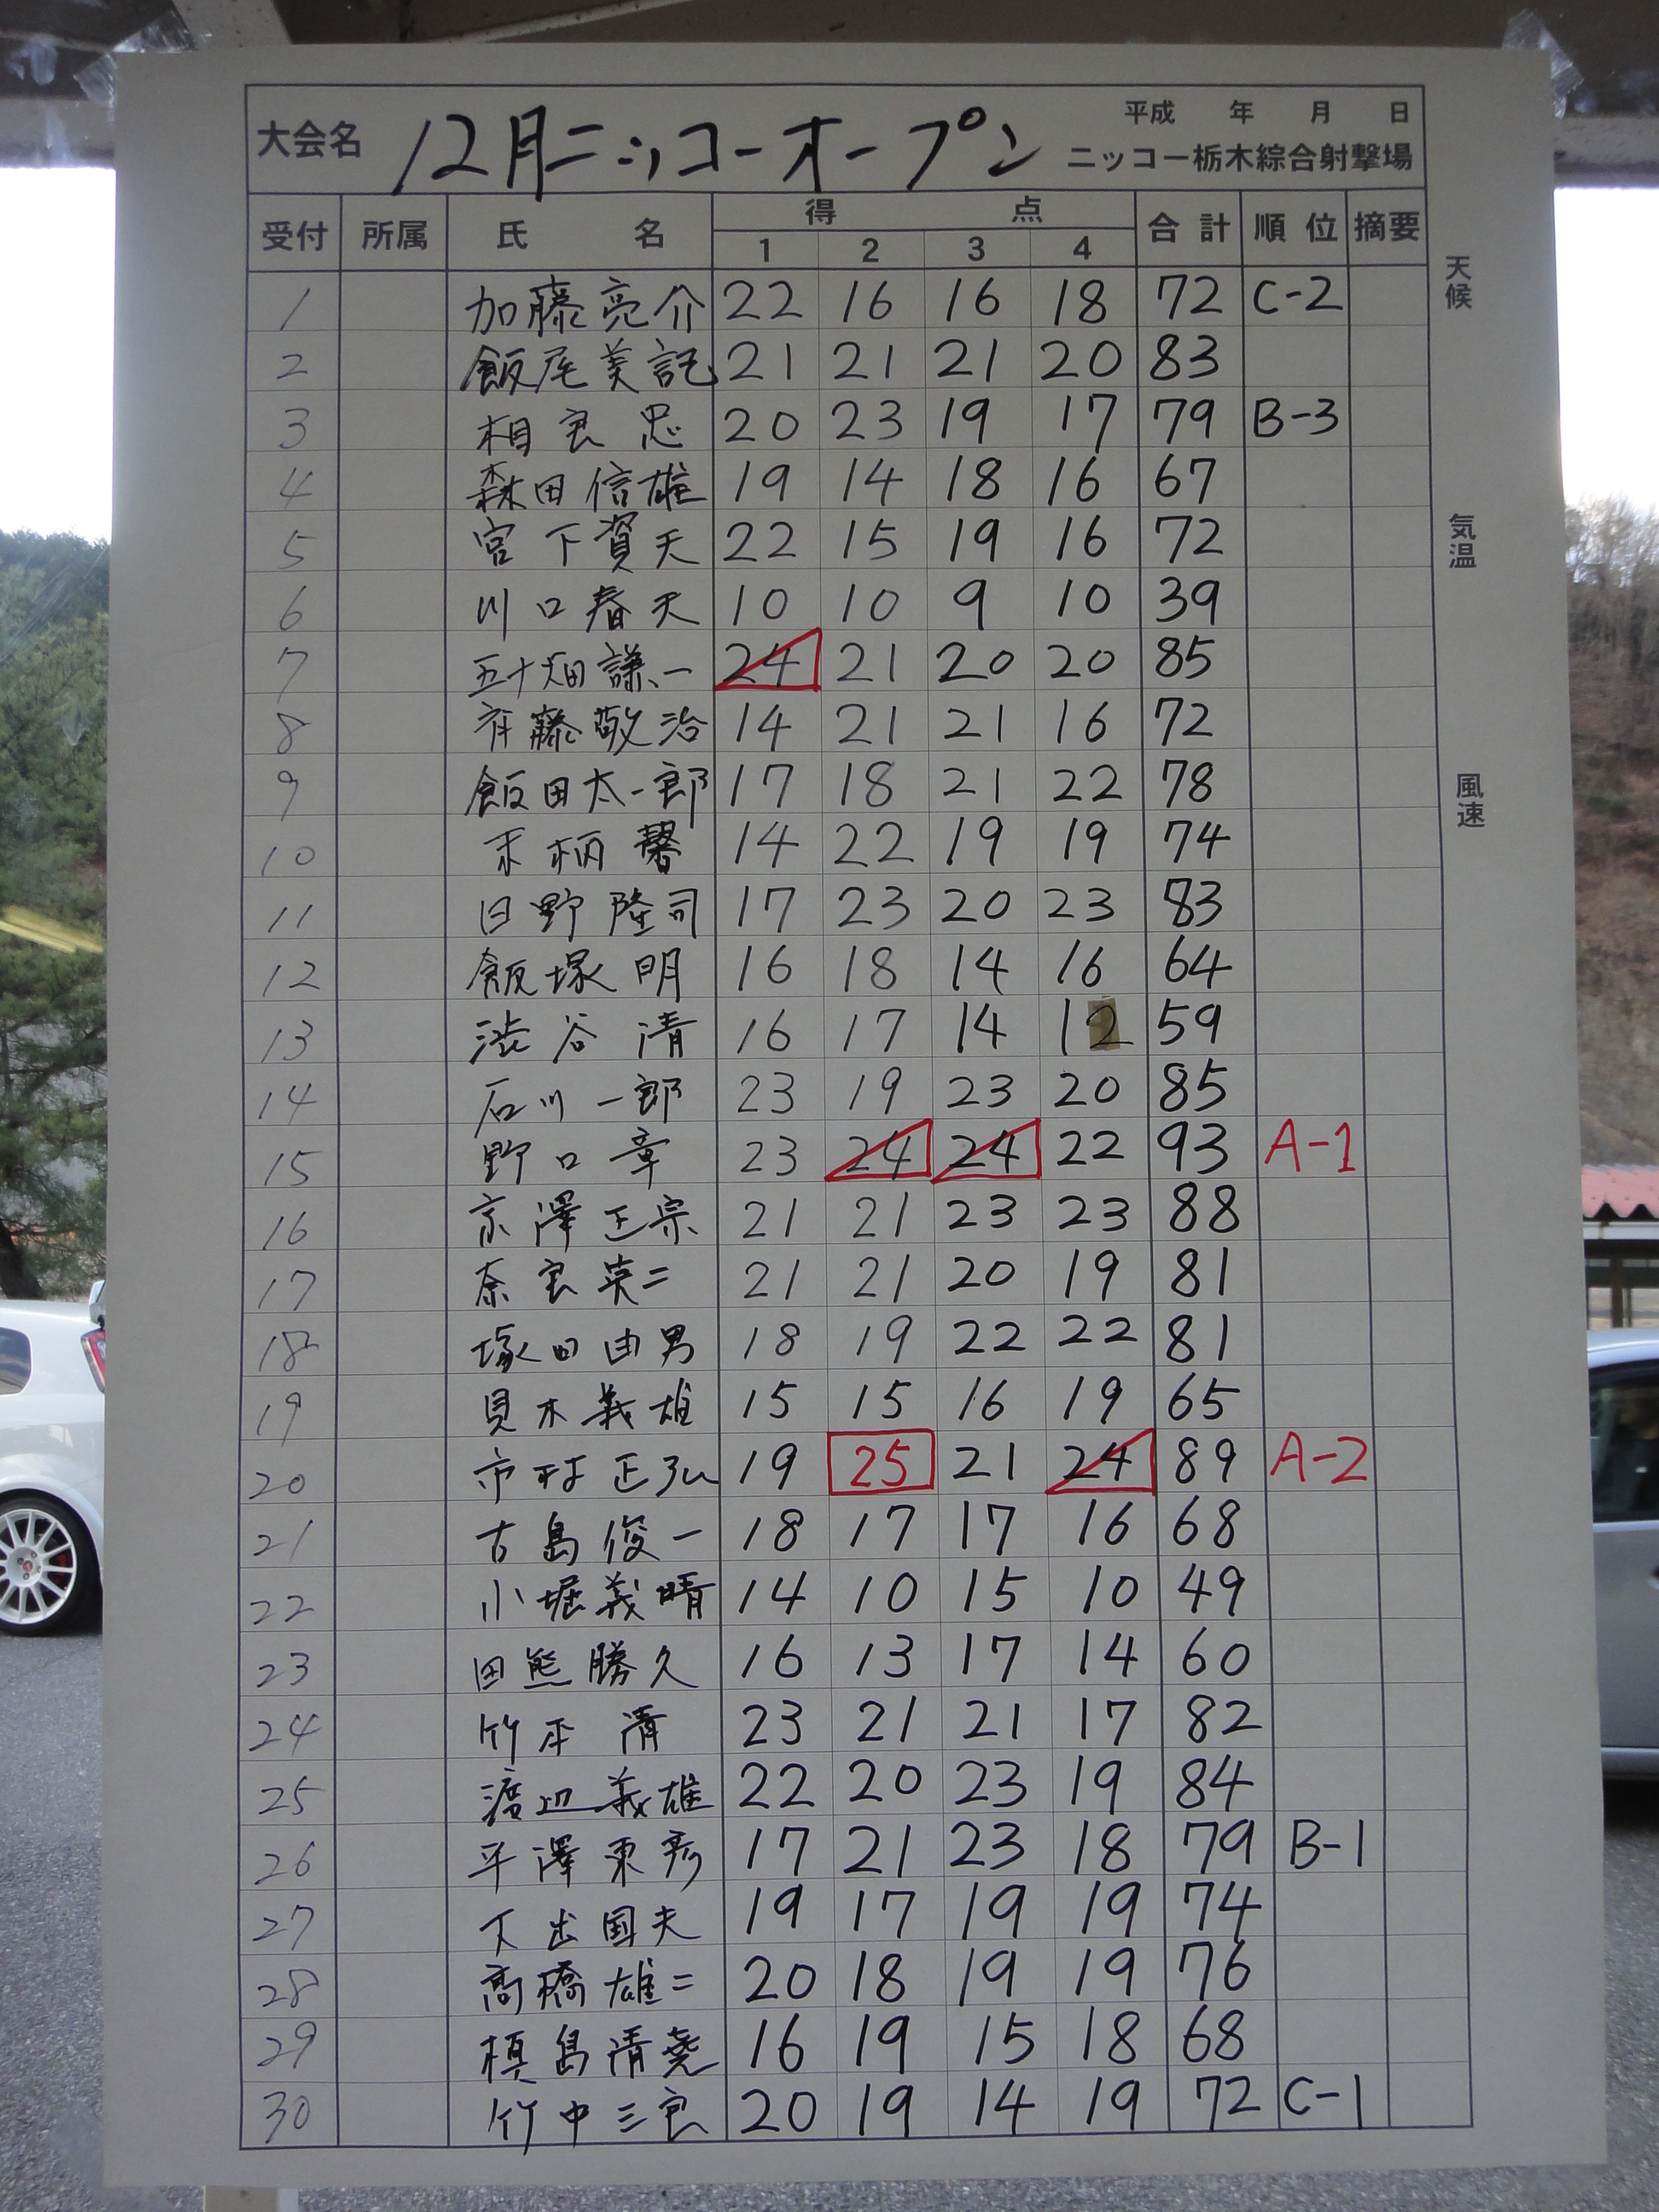 大会名 12月ニッコーオープン 平成 年 月 日
ニッコー栃木綜合射撃場
受付 所属 氏 名 得 点 合計 順位 摘要
1 2 3 4
1 加藤亮介 22 16 16 18 72 C-2
2 飯尾美記 21 21 21 20 83
3 相良忠 20 23 19 17 79 B-3
4 森田信雄 19 14 18 16 67
5 宮下資天 22 15 19 16 72
6 川口春天 10 10 9 10 39
7 五十畑謙一 24 21 20 20 85
8 斉藤敬治 14 21 21 16 72
9 飯田太一郎 17 18 21 22 78
10 末柄馨 14 22 19 19 74
11 日野隆司 17 23 20 23 83
12 飯塚明 16 18 14 16 64
13 渋谷清 16 17 14 12 59
14 石川一郎 23 19 23 20 85
15 野口章 23 24 24 22 93 A-1
16 京澤正宗 21 21 23 23 88
17 奈良英二 21 21 20 19 81
18 塚田由男 18 19 22 22 81
19 貝木義雄 15 15 16 19 65
20 市村正弘 19 25 21 24 89 A-2
21 古島俊一 18 17 17 16 68
22 小堀義晴 14 10 15 10 49
23 田熊勝久 16 13 17 14 60
24 竹平清 23 21 21 17 82
25 渡辺義雄 22 20 23 19 84
26 平澤東彦 17 21 23 18 79 B-1
27 下出国夫 19 17 19 19 74
28 高橋雄二 20 18 19 19 76
29 槙島清堯 16 19 15 18 68
30 竹中三良 20 19 14 19 72 C-1
天候
気温
風速